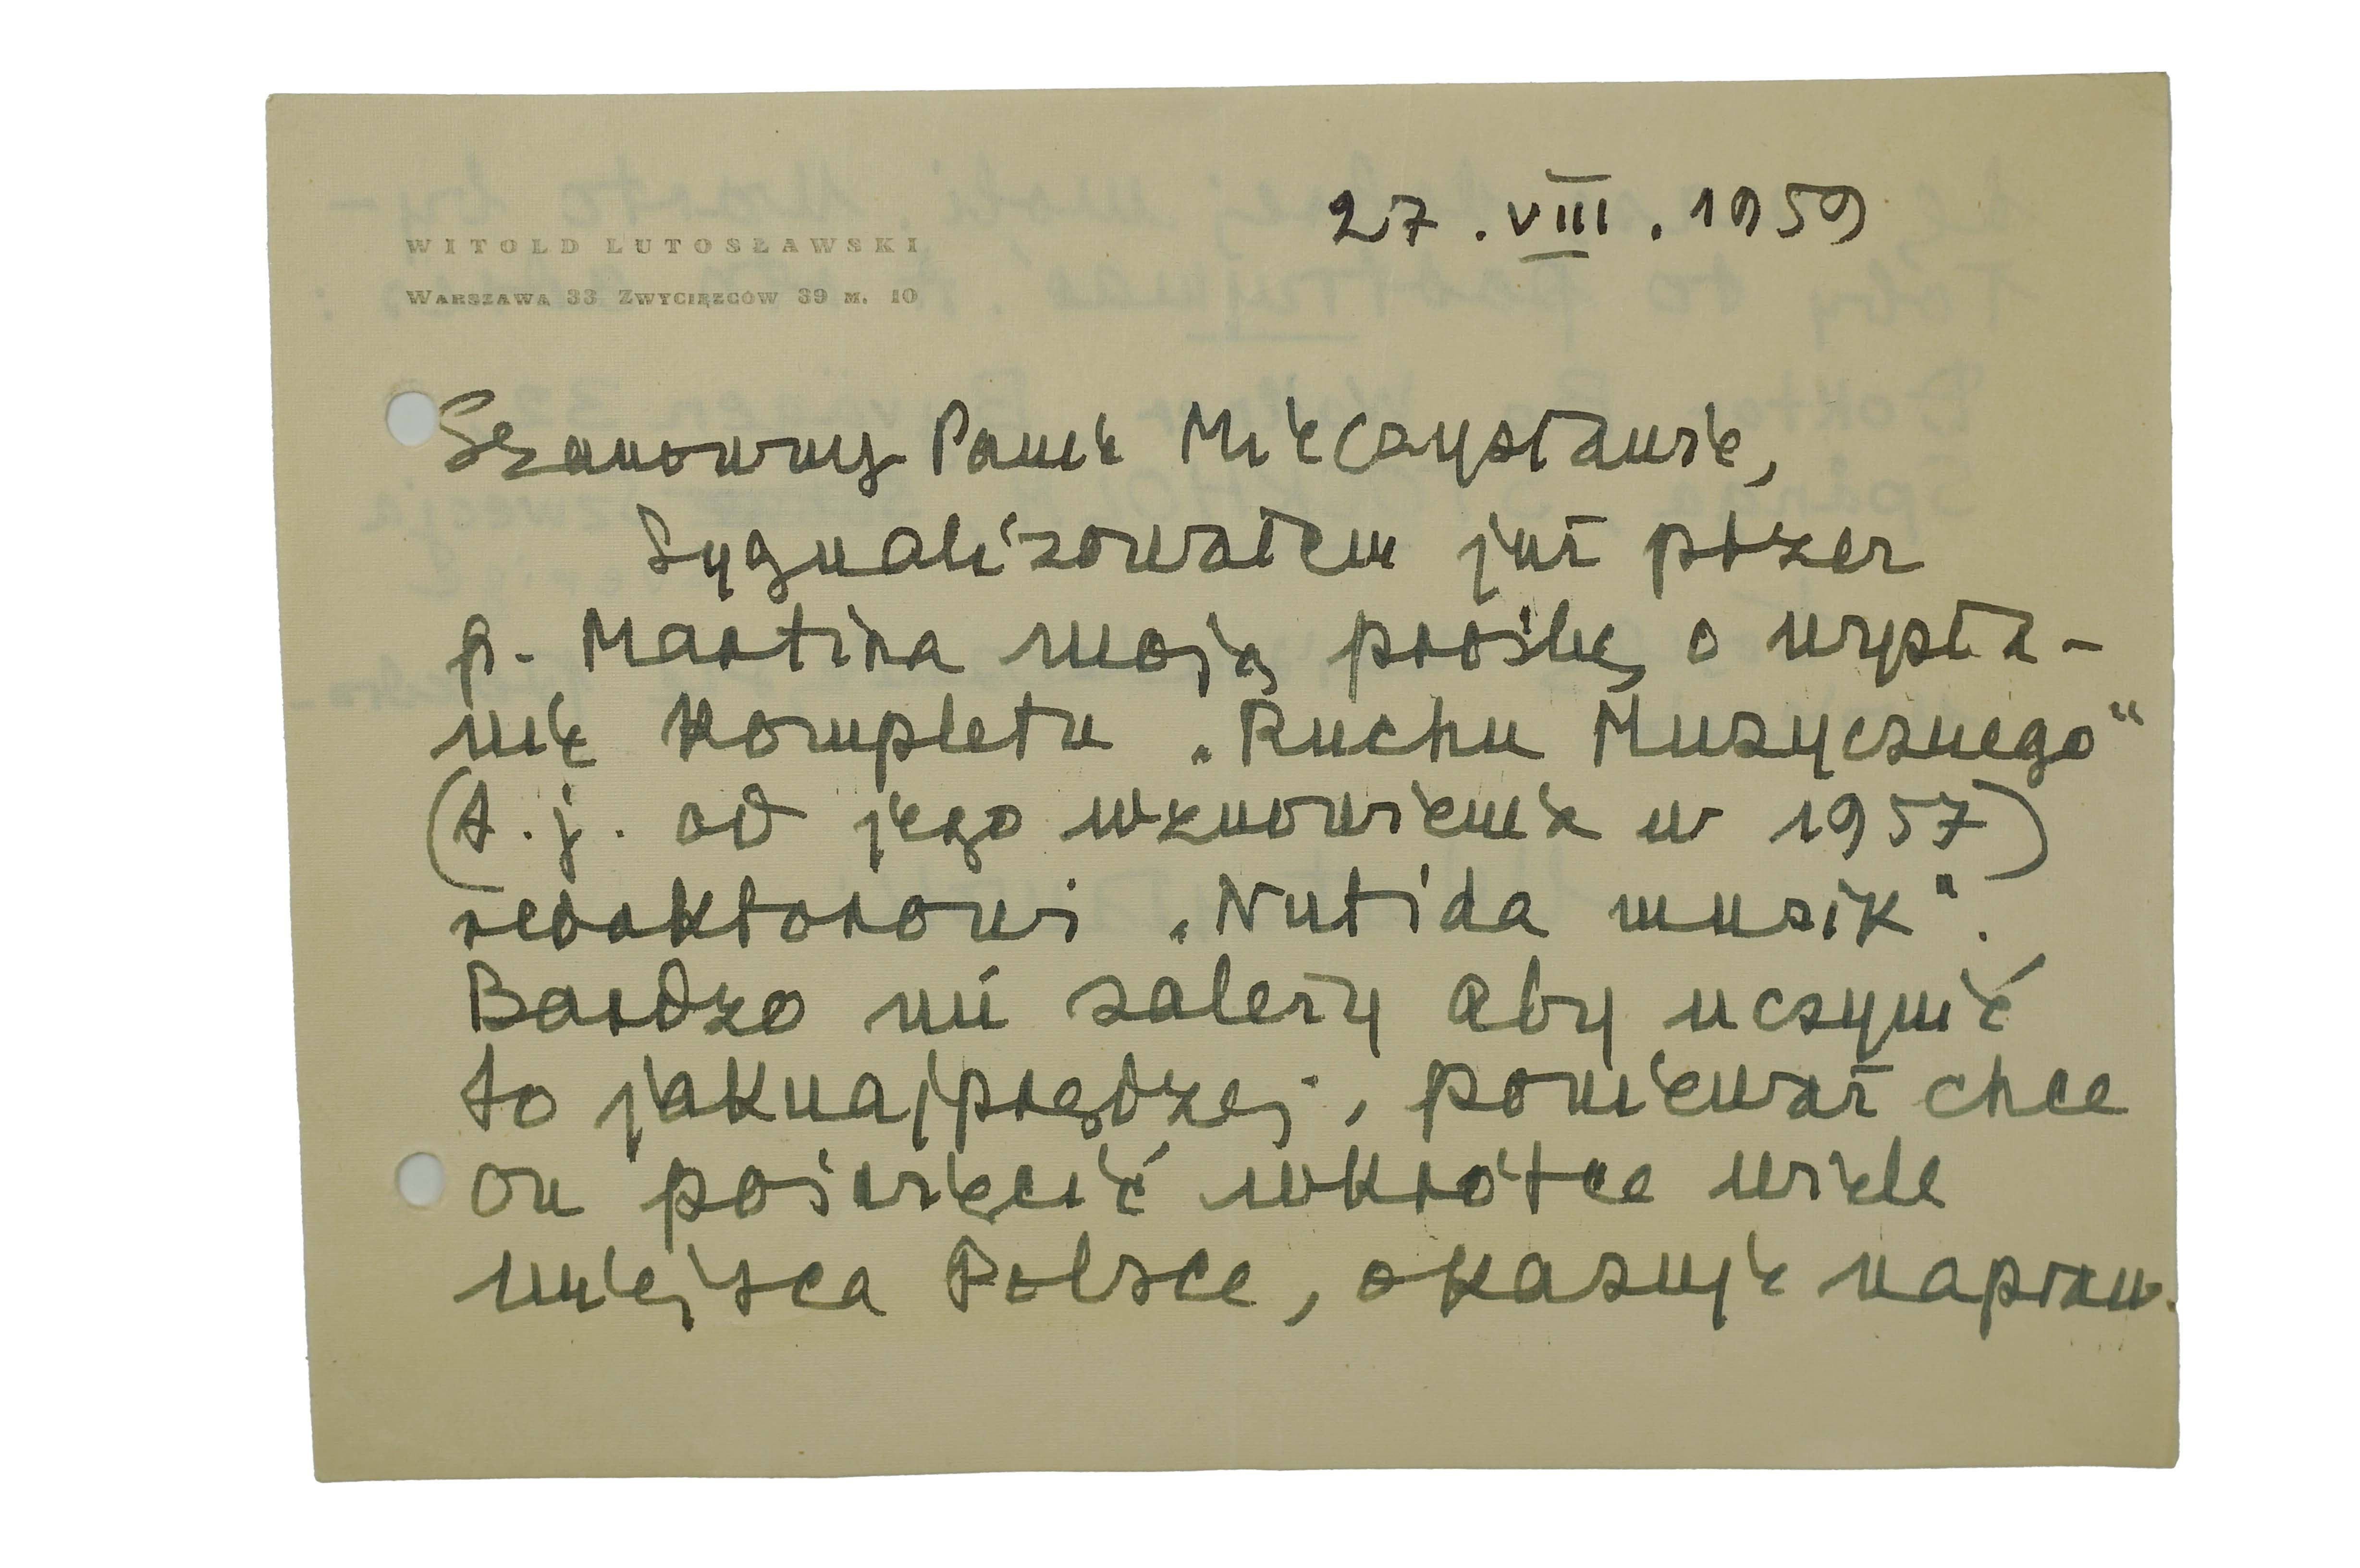 27.VIII.1959
WITOLD LUTOSŁAWSKI
WARSZAWA 33 ZWYCIĘZCÓW 39 M. 10
Szanowny Panie Mieczysławie,
Sygnalizowałem już przez
p. Martina moją prośbę o wysła-
nie kompletu „Ruchu Muzycznego“
(t.j. od jego wznowienia w 1957)
redaktorowi „Nutida musik“.
Bardzo mi zależy aby uczynić
to jaknajprędzej, ponieważ chce
on poświęcić wkrótce wiele
miejsca Polsce, okazuje napraw-